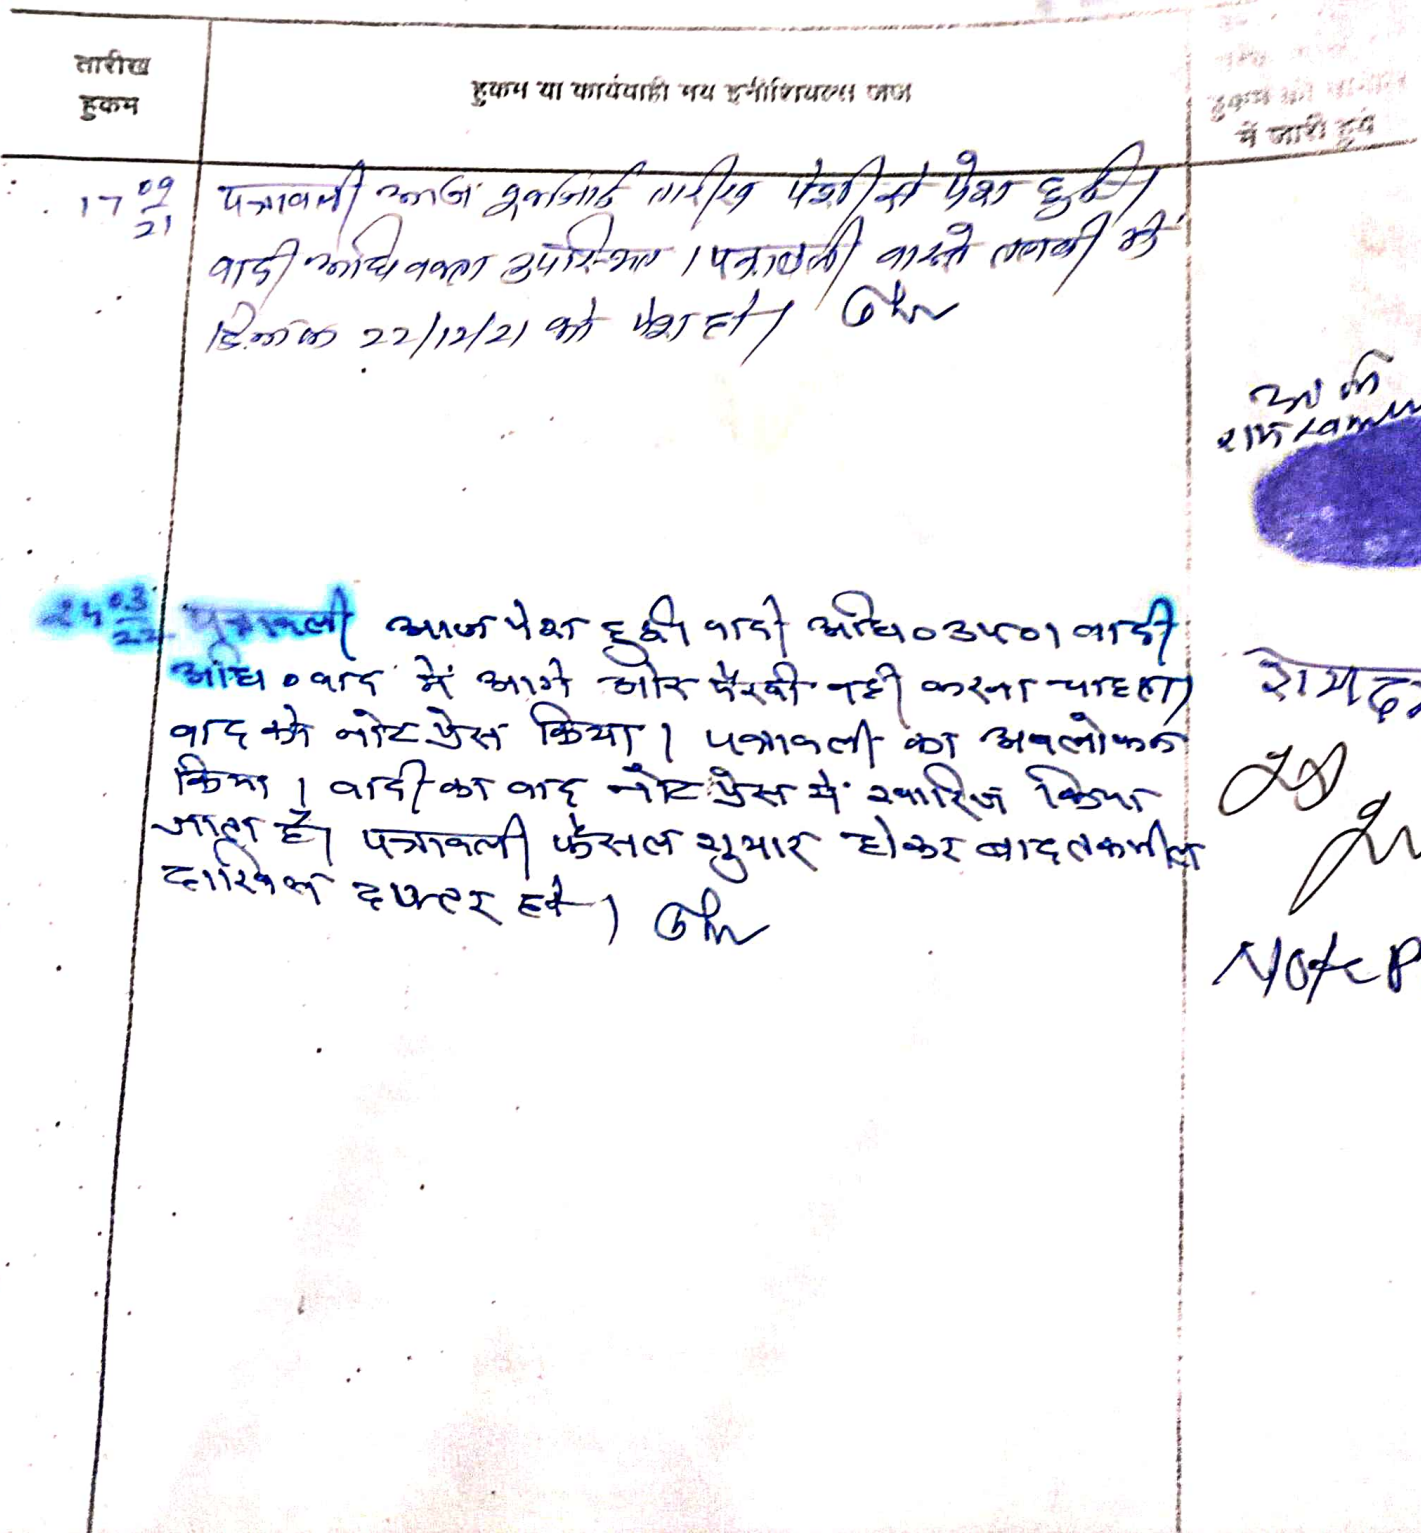 तारीख
हुकम
हुकम या कार्यवाही मय इनीशियल्स जज
हुकम की तामील
में जारी हुये
17 09/21 पत्रावली आज तारीख पेशी से पेश हुई।
वादी अधिवक्ता उपस्थित। पत्रावली वास्ते तलबी में
दिनांक 22/12/21 को पेश हो।
24 03/22 पत्रावली आज पेश हुई। वादी अधि० उप०। वादी
अधि० वाद में आगे और पैरवी नही करना चाहता।
वाद को नोट प्रेस किया। पत्रावली का अवलोकन
किया। वादी का वाद नोट प्रेस में खारिज किया
जाता है। पत्रावली फैसल शुमार होकर बाद तकमील
दाखिल दफ्तर हो।
Note P